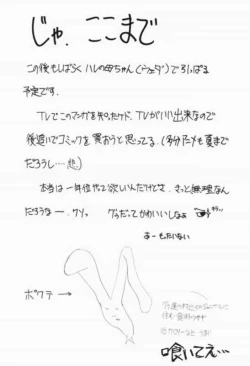 じゃ、ここまで
この後もしばらく ハレの母ちゃん(ウェダ)で引っぱる
予定です。
TVでこのマンガを知ったケド、TVがいい出来なので
後追いでコミックを買おうと思ってる。(多分アニメも夏まで
だろうし…悲)
本当は一年位やって欲しいんだけどさ、きっと無理なん
だろうなー。クソッ
グゥだってかわいいしなぁ
あーもったいない
ポクテ→
喰いてえ…